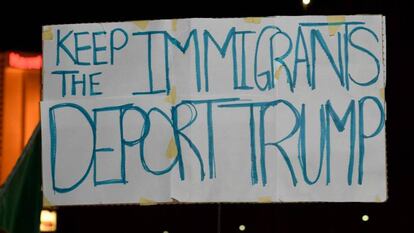 KEEP THE IMMIGRANTS
DEPORT TRUMP